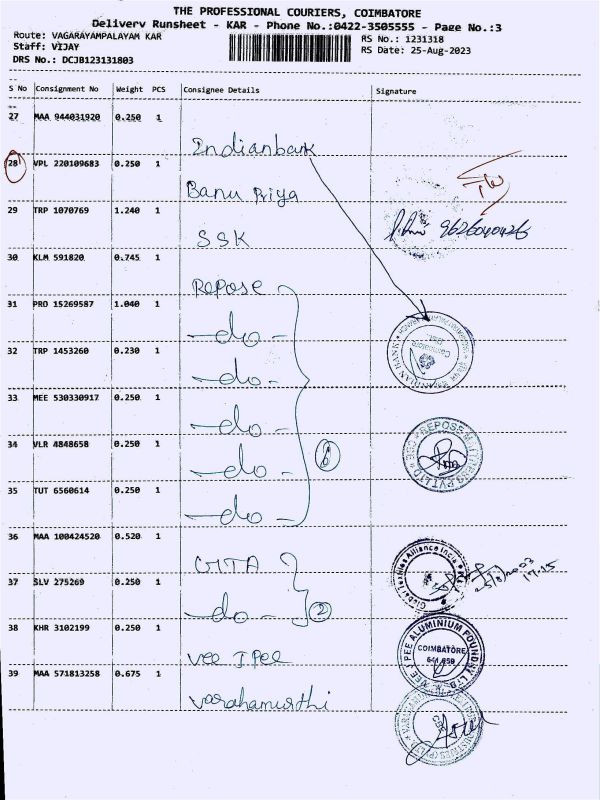 THE PROFESSIONAL COURIERS, COIMBATORE
Delivery Runsheet - KAR - Phone No.:0422-3505555 - Page No.:3
Route: VAGARAYAMPALAYAM KAR
RS No.: 1231318
Staff: VIJAY
RS Date: 25-Aug-2023
DRS No.: DCJB123131803
S No Consignment No Weight PCS Consignee Details Signature
27 MAA 944031920 0.250 1
Indianbank
28 VPL 220109683 0.250 1
Banu Priya
29 TRP 1070769 1.240 1
9626040426
SSK
30 KLM 591820 0.745 1
Repose
31 PRO 15269587 1.040 1
-do-
32 TRP 1453260 0.230 1
-do-
33 MEE 530330917 0.250 1
-do-
34 VLR 4848658 0.250 1
-do- 6
35 TUT 6560614 0.250 1
-do-
36 MAA 100424520 0.520 1
GITA
37 SLV 275269 0.250 1
-do- 2
38 KHR 3102199 0.250 1
VEE J PEE ALUMINIUM FOUNDRY
COIMBATORE
Vee J. Pee
39 MAA 571813258 0.675 1
Varahamurthi